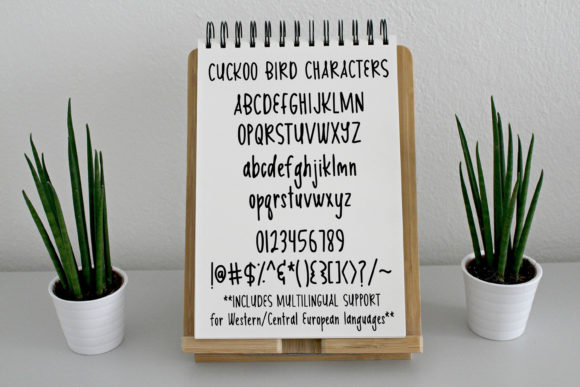 CUCKOO BIRD CHARACTERS
ABCDEFGHIJKLMN
OPQRSTUVWXYZ
abcdefghijklmn
opqrstuvwxyz
0123456789
!@#$%^&*(){}[]<>?/~
**INCLUDES MULTILINGUAL SUPPORT
for Western/Central European languages**